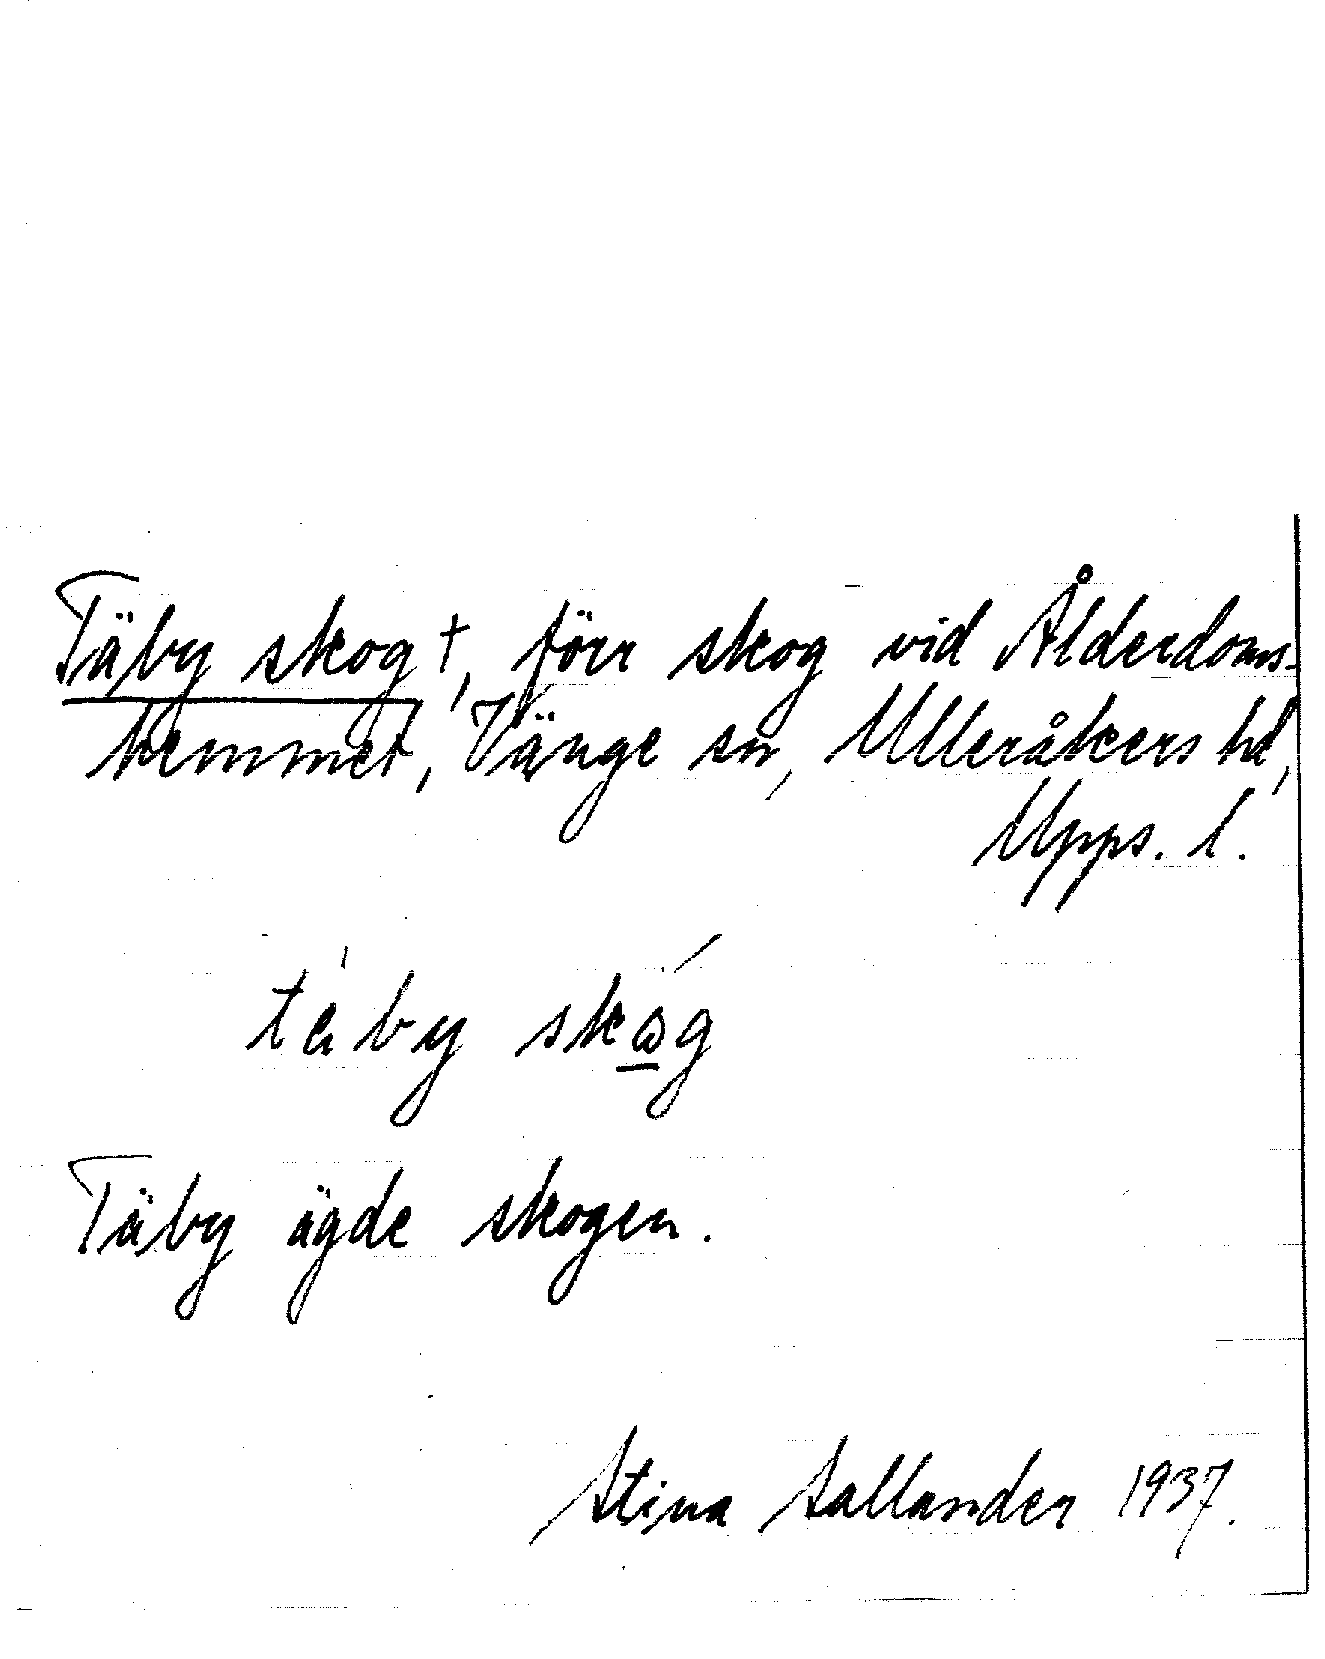 Täby skog †, förr skog vid Ålderdoms-
hemmet, Vänge sn, Ulleråkers hd,
Upps. l.
täby skog
Täby ägde skogen.
Stina Sallander 1937.